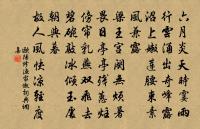 六月炎天時霎雨
行雲涌出奇峰露
沼上嫩蓮腰束素
風兼露
梁王宮闕無煩暑
畏日亭亭殘蕙炷
傍簾乳燕雙飛去
碧碗敲冰傾玉處
朝與暮
故人風快涼輕度
歐陽修漁家傲